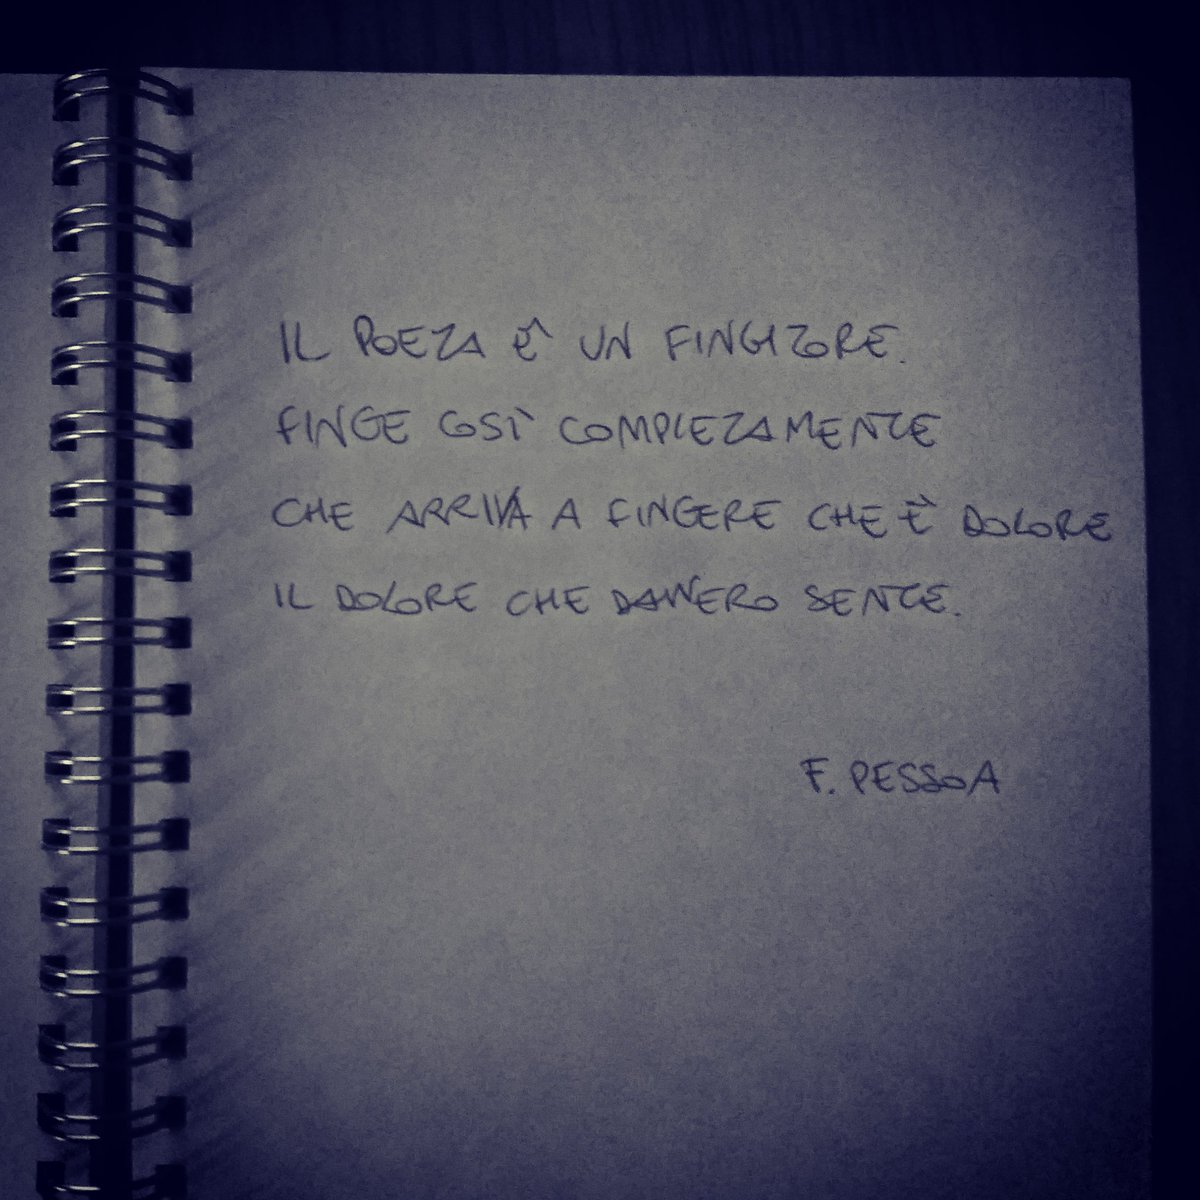 IL POETA È UN FINGITORE.
FINGE COSÌ COMPLETAMENTE
CHE ARRIVA A FINGERE CHE È DOLORE
IL DOLORE CHE DAVVERO SENTE.
F. PESSOA